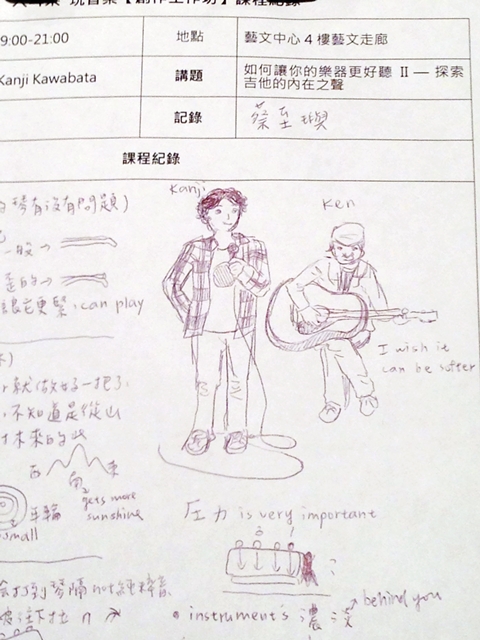 玩音樂【創作工作坊】課程紀錄
9:00-21:00 地點 藝文中心 4 樓藝文走廊
Kanji Kawabata 講題 如何讓你的樂器更好聽 II — 探索吉他的內在之聲
記錄 蔡
課程紀錄
琴有沒有問題)
Kanji
Ken
一般→
歪的→
更緊, can play
I wish it
can be softer
就做好一把了
不知道是從山
來的
西 東
南
gets more
sunshine
年輪
small
圧力 is very important
打到琴隔 not 純粹音
• instrument's 濃淡 → behind you